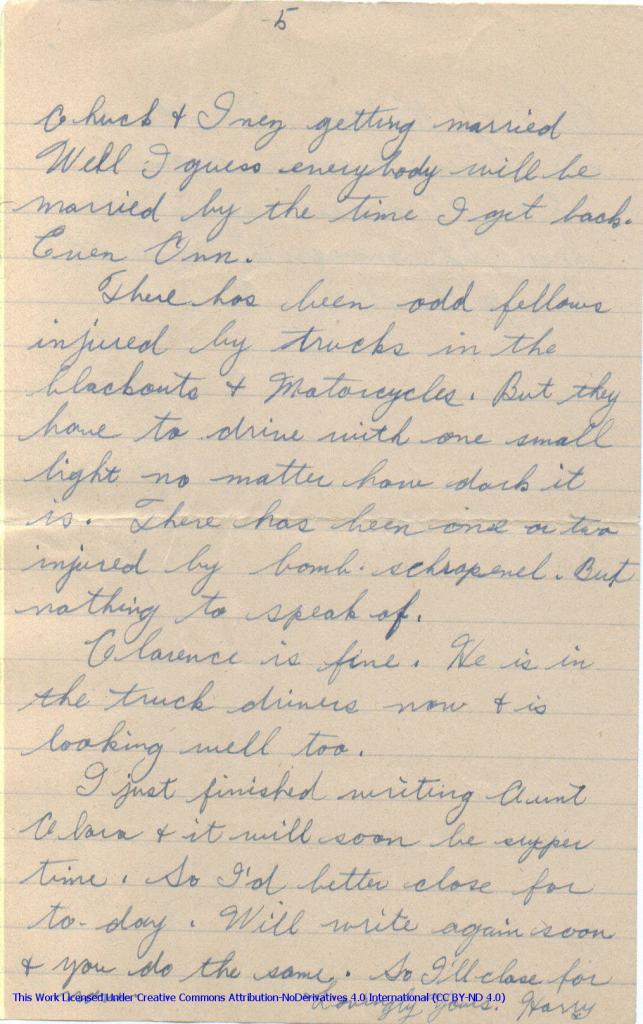 5
Chuck & Inez getting married
Well I guess everybody will be
married by the time I get back.
Even Ann.
There has been odd fellows
injured by trucks in the
blackouts & Motorcycles. But they
have to drive with one small
light no matter how dark it
is. There has been one or two
injured by bomb. schrapenel. But
nothing to speak of.
Clarence is fine. He is in
the truck drivers now & is
looking well too.
I just finished writing Aunt
Clara & it will soon be supper
time. So I'd better close for
to-day. Will write again soon
& you do the same. So I'll close for
now. Lovingly yours. Harry
This Work Licensed Under Creative Commons Attribution-NoDerivatives 4.0 International (CC BY-ND 4.0)